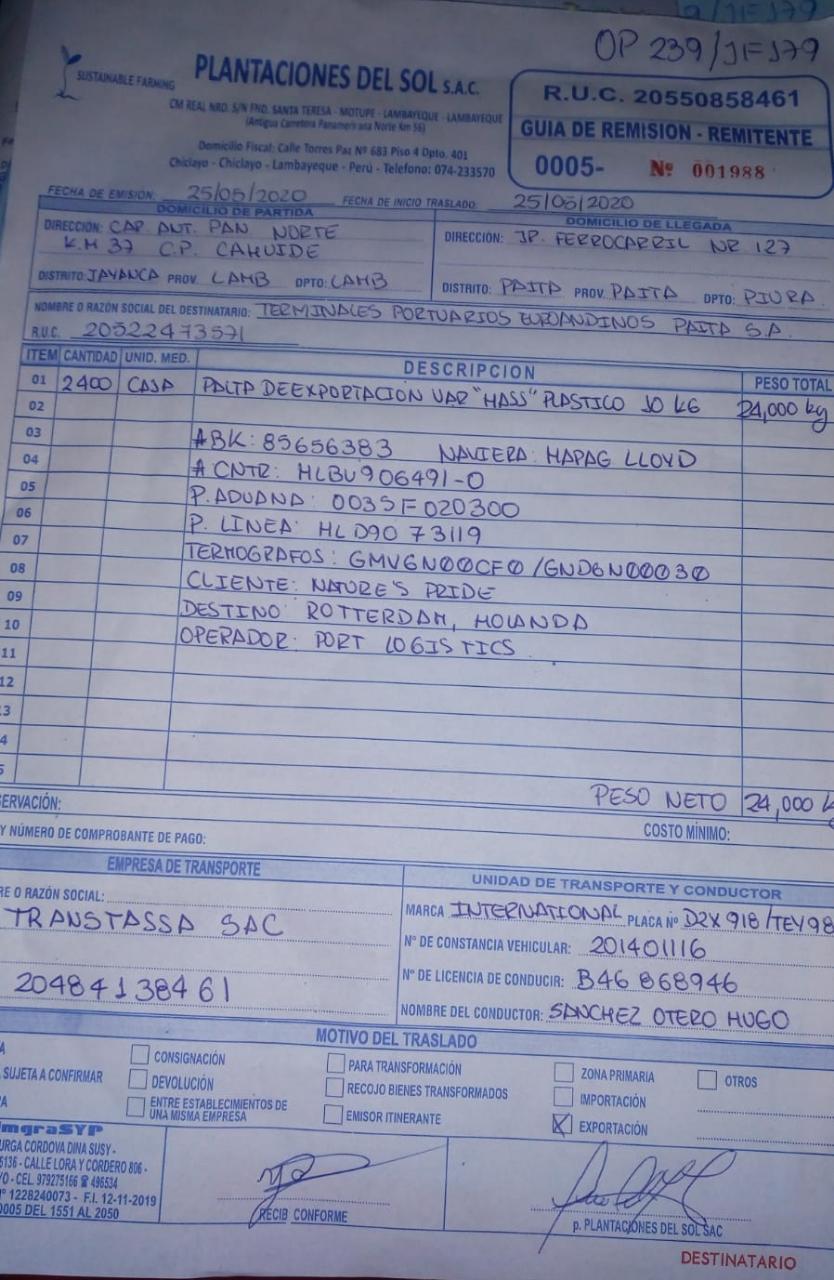 OP 239/JF179
SUSTAINABLE FARMING
PLANTACIONES DEL SOL S.A.C.
CM REAL NRO. S/N FND. SANTA TERESA - MOTUPE - LAMBAYEQUE - LAMBAYEQUE
(Antigua Carretera Panamericana Norte Km 56)
Domicilio Fiscal: Calle Torres Paz Nº 683 Piso 4 Dpto. 401
Chiclayo - Chiclayo - Lambayeque - Perú - Telefono: 074-233570
R.U.C. 20550858461
GUIA DE REMISION - REMITENTE
0005- Nº 001988
FECHA DE EMISIÓN: 25/05/2020 FECHA DE INICIO TRASLADO: 25/05/2020
DOMICILIO DE PARTIDA
DIRECCIÓN: CAR. ANT. PAN NORTE
K.M 37 C.P. CAHUIDE
DISTRITO: JAYANCA PROV. LAMB DPTO: LAMB
DOMICILIO DE LLEGADA
DIRECCIÓN: JR. FERROCARRIL NR 127
DISTRITO: PAITA PROV. PAITA DPTO: PIURA
NOMBRE O RAZÓN SOCIAL DEL DESTINATARIO: TERMINALES PORTUARIOS EUROANDINOS PAITA S.A.
R.U.C. 20522473571
ITEM CANTIDAD UNID. MED. DESCRIPCION PESO TOTAL
01 2400 CAJA PALTA DE EXPORTACION VAR "HASS" PLASTICO 10 KG 24,000 kg
02
03 ABK: 85656383 NAVIERA: HAPAG LLOYD
04 A CNTR: HLBU906491-0
05 P. ADUANA: 0035F020300
06 P. LINEA: HLD90 73119
07 TERMOGRAFOS: GMV6N00CF0 /GND6N00030
08 CLIENTE: NATURE'S PRIDE
09 DESTINO: ROTTERDAM, HOLANDA
10 OPERADOR: PORT LOGISTICS
11
12
3
4
5
PESO NETO 24,000 k
ERVACIÓN:
COSTO MÍNIMO:
Y NÚMERO DE COMPROBANTE DE PAGO:
EMPRESA DE TRANSPORTE
RE O RAZÓN SOCIAL:
TRANSTASSA SAC
20484138461
UNIDAD DE TRANSPORTE Y CONDUCTOR
MARCA INTERNATIONAL PLACA Nº D2X 918/TEY98
N° DE CONSTANCIA VEHICULAR: 201401116
N° DE LICENCIA DE CONDUCIR: B46 868946
NOMBRE DEL CONDUCTOR: SANCHEZ OTERO HUGO
MOTIVO DEL TRASLADO
A
SUJETA A CONFIRMAR
RA
CONSIGNACIÓN
DEVOLUCIÓN
ENTRE ESTABLECIMIENTOS DE
UNA MISMA EMPRESA
PARA TRANSFORMACIÓN
RECOJO BIENES TRANSFORMADOS
EMISOR ITINERANTE
ZONA PRIMARIA
IMPORTACIÓN
EXPORTACIÓN
OTROS
mgraSYP
URGA CORDOVA DINA SUSY -
5136 - CALLE LORA Y CORDERO 806 -
YO - CEL. 979275166 ☎ 496534
N° 1228240073 - F.I. 12-11-2019
0005 DEL 1551 AL 2050
RECIB CONFORME
p. PLANTACIONES DEL SOL SAC
DESTINATARIO